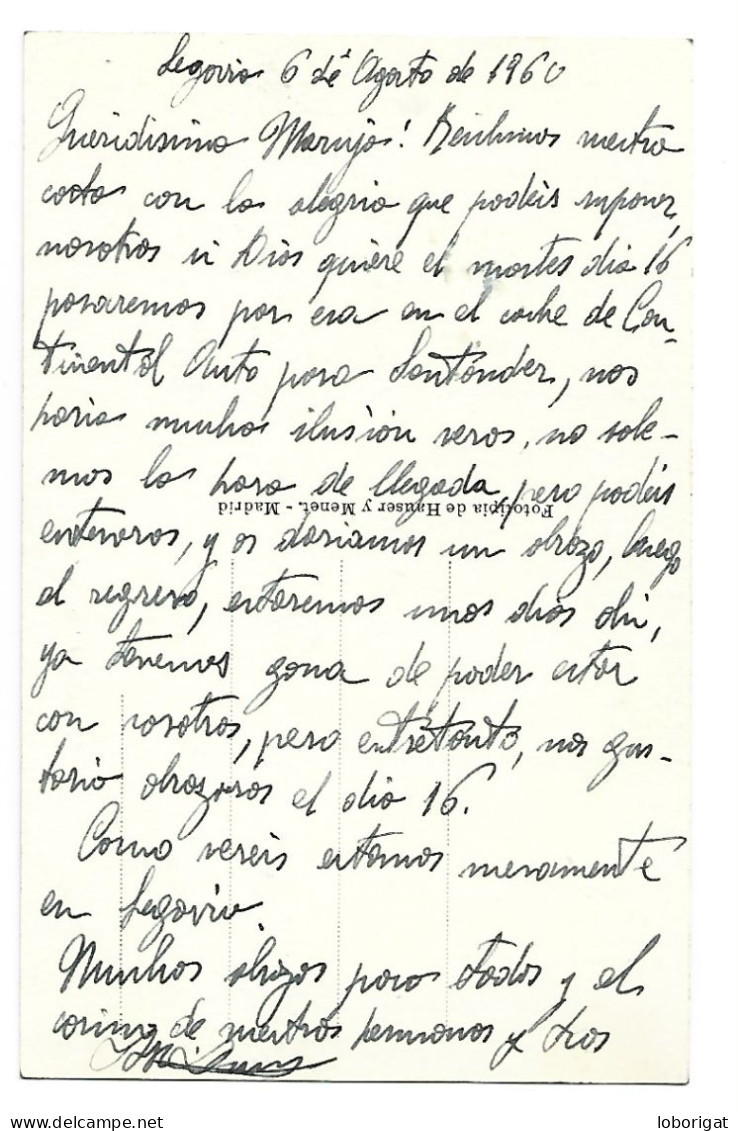 Segovia 6 de Agosto de 1960
Queridisima Maruja: Recibimos vuestra
carta con la alegria que podéis suponer,
nosotros si Dios quiere el martes dia 16
pasaremos por esa en el coche de Con-
tinental Auto para Santander, nos
haria mucha ilusión veros, no sabe-
mos la hora de llegada, pero podéis
enteraros, y os dariamos un abrazo, luego
al regreso, estaremos unos dias ahi,
ya tenemos gana de poder estar
con vosotros, pero entretanto, nos gus-
taria abrazaros el dia 16.
Como vereis estamos nuevamente
en Segovia.
Muchos abrazos para todos y el
cariño de vuestros hermanos y tios
Fototipia de Hauser y Menet. - Madrid
loborigat